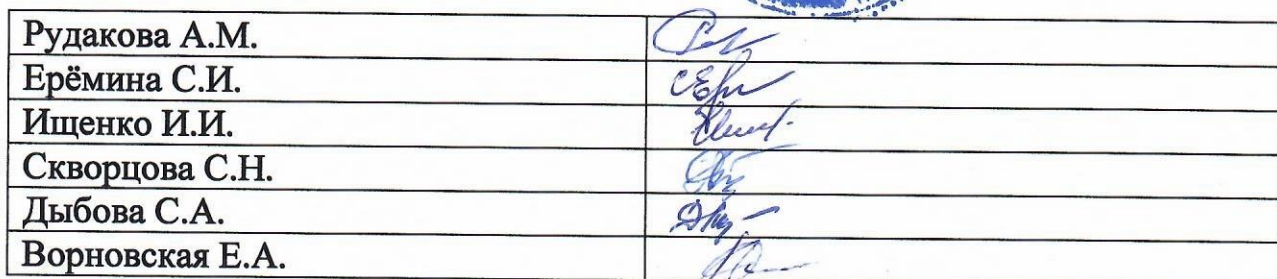 Рудакова А.М.
Ерёмина С.И.
Ищенко И.И.
Скворцова С.Н.
Дыбова С.А.
Ворновская Е.А.